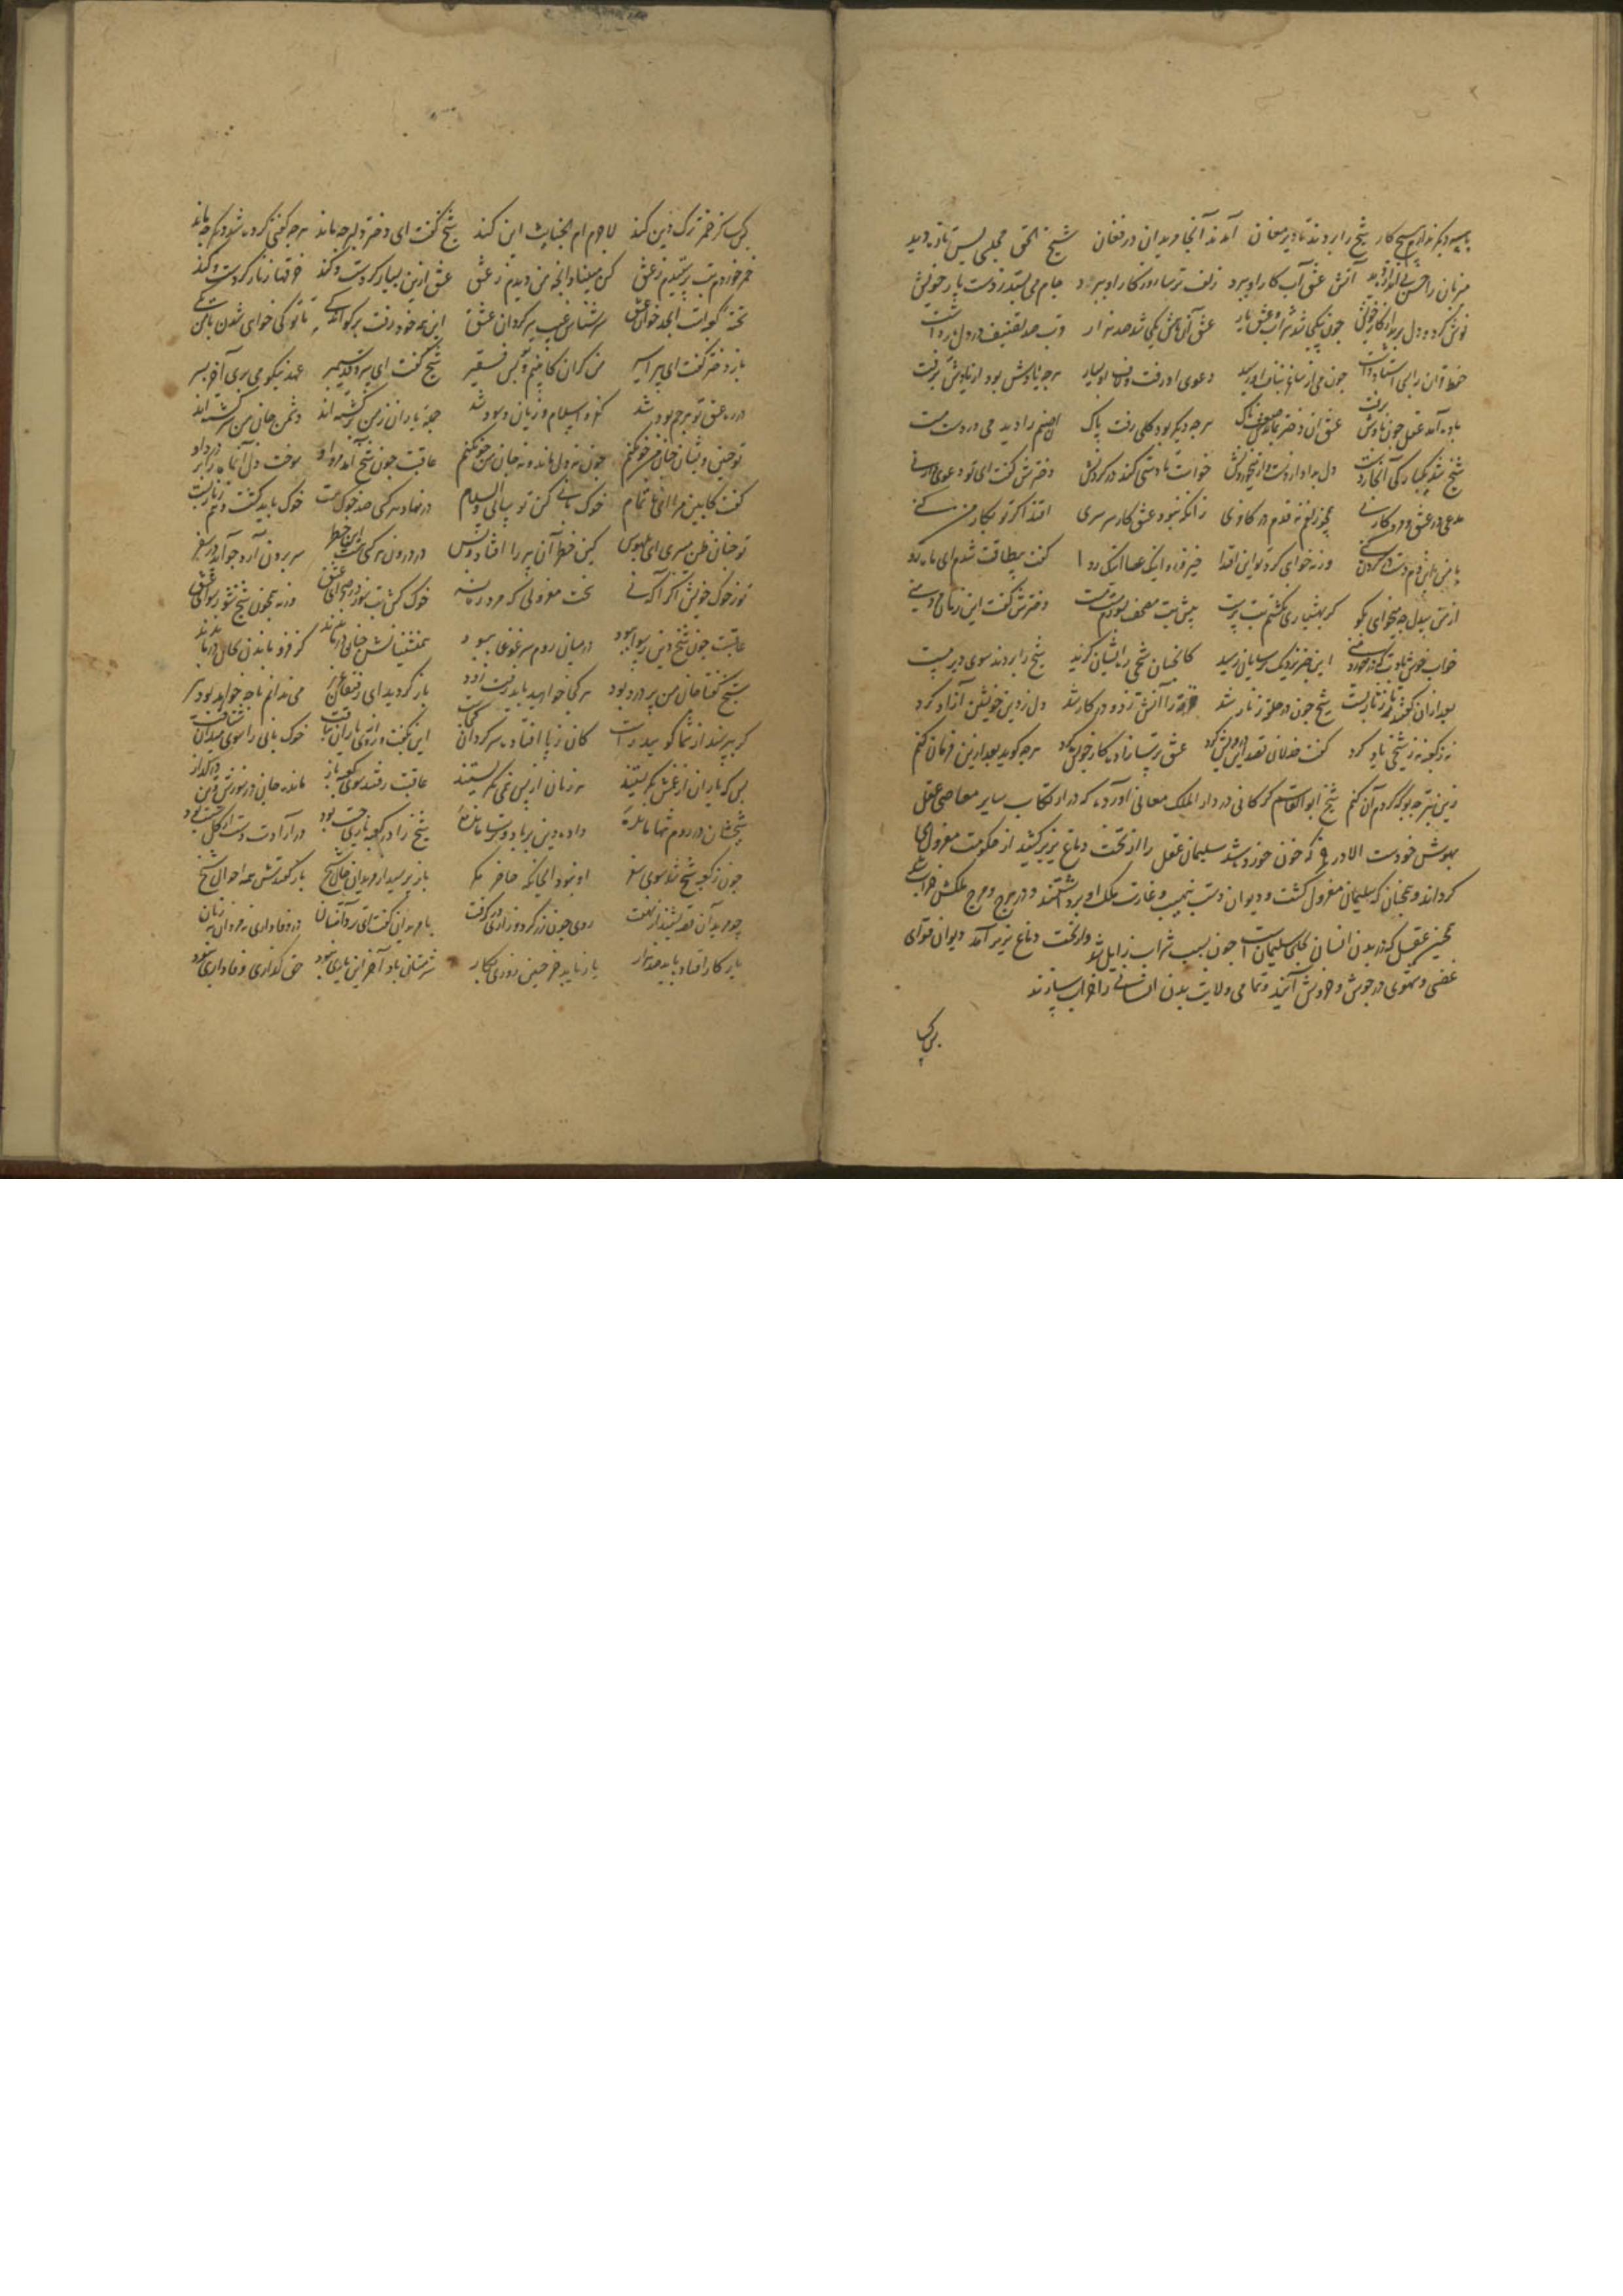 با سه دیگر ندارم هیچ کار شیخ را بردند تا دیر مغان آمدند آنجا مریدان در فغان شیخ الحق مجلسی بس تازه دید
میزبان را حسن بی اندازه دید آتش عشق آب کار او ببرد زلف ترسا روزکار او ببرد جام می بستد ز دست یار خویش
نوش کرد و دل برید از کار خویش چون بیکجا شد شراب و عشق یار عشق آن ماهش یکی شد صد هزار قرب صد تصنیف در دل یاد داشت
حفظ قران را بسی استاد داشت چون می از ساغر بناف او رسید دعوی او رفت و لاف او رسید هرچه یادش بود از یادش برفت
باده آمد عقل چون بادش برفت عشق آن دختر بماندش صعبناک هرچه دیکر بود کلی رفت پاک آن صنم را دید می در دست مست
شیخ شد یکبارکی آنجا ز دست دل بداد از دست و از می خوردنش خواست تا دستی کند در کردنش دخترش کفت ای تو دعوی دار نی
مدعی در عشق و مرد کار نی همچو زلفم نه قدم در کافری زانکه نبود عشق کار سرسری اقتدا کر تو بکار من کنی
با من این دم دست در کردن کنی ور نخواهی کرد تو این اقتدا خیز رو اینک عصا اینک ردا کفت بیطاقت شدم ای ماه رو
از من بیدل چه میخواهی بکو کر بهشیاری نکشتم بت پرست پیش بت مصحف بسوزم مست مست دخترش کفت این زمان مرد منی
خواب خوش بادت که در خورد منی این خبر نزدیک ترسایان رسید کانچنان شیخی ره ایشان کزید شیخ را بردند سوی دیر مست
بعد ازان کفتند تا زنار بست شیخ چون در حلقه زنار شد خرقه را آتش زد و در کار شد دل ز دین خویشتن آزاد کرد
نه ز کعبه نه ز شیخی یاد کرد کفت خذلان قصد این درویش کرد عشق ترسازاده کار خویش کرد هرچه کوید بعد ازین فرمان کنم
زین بتر چه بود که کردم آن کنم شیخ ابو القاسم کرکانی در دار الملک معانی آورده که در ارتکاب سایر معاصی عقل
بهوش خودست الا در می که چون خورده شد سلیمان عقل را از تخت دماغ بزیر کشید از حکومت معزول
کرداند و همچنان که سلیمان معزول کشت و دیوان دست بنهب و غارت ملک او برداشتند و در هرج و مرج ملکش
همچنین عقل که در بدن انسان بجای سلیمان است چون بسبب شراب زایل شد و از تخت دماغ بزیر آمد دیوان قوای
غضبی و شهوی در جوش و خروش آیند و تمامی ولایت بدن انسانی را خراب سازند
بس کسا
بس کسا کز خمر ترک دین کند لاجرم ام الخبایث این کند شیخ کفت ای دختر دلبر چه ماند هرچه کفتی کرده شد دیکر چه ماند
خمر خوردم بت پرستیدم ز عشق کس مبیناد آنچه من دیدم ز عشق عشق ازین بسیار کردست و کند خرقها زنار کردست و کند
تخته کعبه است ابجد خوان عشق سرشناس غیب سرکردان عشق این همه خود رفت برکو اندکی تا تو کی خواهی شدن با من یکی
باز دختر کفت ای پیر اسیر من کران کابینم و تو بس فقیر شیخ کفت ای سرو قد سیمبر عهد نیکو می بری آخر بسر
در ره عشق تو هرچم بود شد کفر و اسلام و زیان و سود شد جمله یاران ز من برکشته اند دشمن جان من سرکشته اند
تو چنین و ایشان چنان من چون کنم چون نه دل ماند و نه جان من چون کنم عاقبت چون شیخ آمد مرد او سوخت دل آن ماه را بر درد او
کفت کابین مرا ای ناتمام خوک بانی کن تو سالی والسلام در نهاد هر کسی صد خوک هست خوک باید کشت یا زنار بست
تو چنان ظن میبری ای هیچکس کین خطر آن پیر را افتاد و بس در درون هر کسی هست این خطر سر برون آرد چو آید در سفر
تو ز خوک خویش اکر آکه نه سخت معذوری که مرد ره نه خوک کش بت سوز در صحرای عشق ورنه همچون شیخ شو رسوای عشق
عاقبت چون شیخ دین ترسا ببود در میان روم سر غوغا ببود همنشینانش چنان درماندند کز فرو ماندن بجان درماندند
شیخ کفتا جان من پر درد بود هر کجا خواهید باید رفت زود باز کردید ای رفیقان عزیز می ندانم تا چه خواهد بود نیز
کر بپرسند از شما کویید راست کان ز پا افتاده سرکردان کجاست این بکفت و روی از یاران بتافت خوک بانی را سوی خوکان شتافت
بس که یاران از غمش بکریستند که ز نان از پس می نکریستند عاقبت رفتند سوی کعبه باز مانده جان در سوزش و تن در کداز
شیخشان در روم تنها مانده داده دین بر باد و ترسا مانده شیخ را در کعبه یاری چست بود در ارادت دست از کل شسته بود
چون ز کعبه شیخ شد سوی سفر او نبود آنجایکه حاضر مکر باز پرسید از مریدان حال شیخ باز کفتندش همه احوال شیخ
چون مرید آن قصه بشنید از شکفت روی چون زر کرد و زاری در کرفت با مریدان کفت ای تر دامنان در وفاداری نه مردان نه زنان
یار کار افتاده باید صد هزار یار ناید جز چنین روزی بکار شرمتان باد آخر این یاری نبود حق کذاری و وفاداری نبود